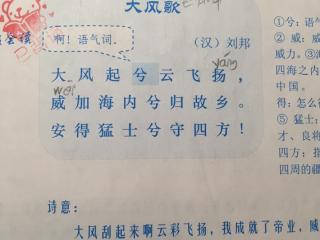 大风歌
啊！语气词。
（汉）刘邦
yáng
大风起兮云飞扬，
wēi
威加海内兮归故乡。
安得猛士兮守四方！
①兮：语
② 威：威
威力。③海
四海之内
中国。
得：怎么得
⑤ 猛士：
才、良将
四方：指
四周的疆
诗意：
大风刮起来啊云彩飞扬，我成就了帝业，威